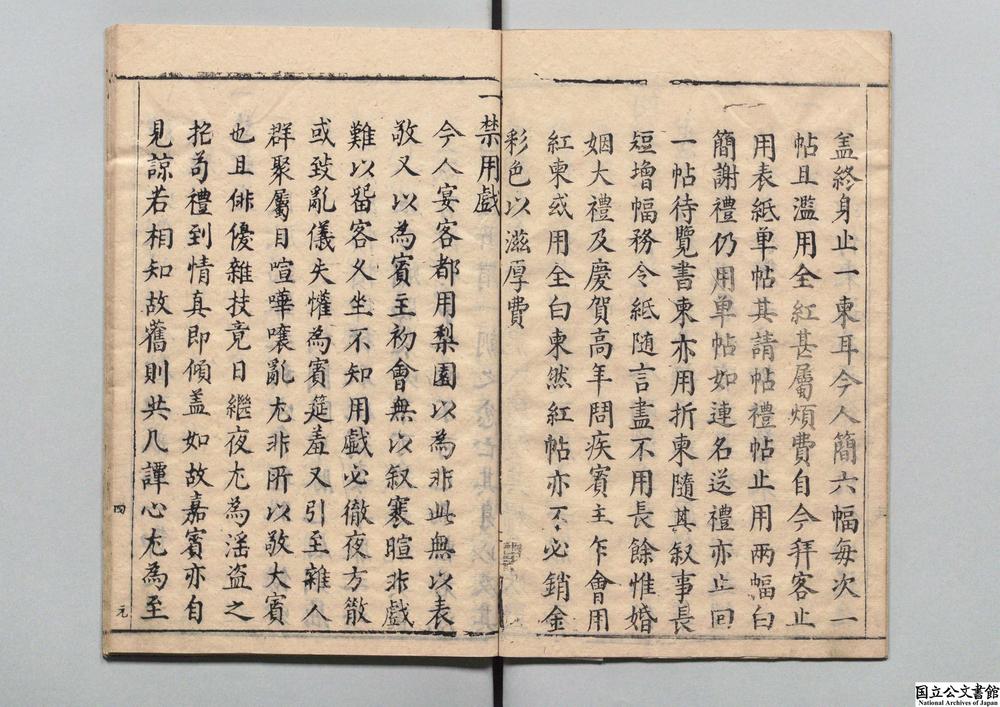 盖終身止一柬耳今人簡六幅每次一
帖且濫用全紅甚屬煩費自今拜客止
用表紙单帖其請帖禮帖止用兩幅白
簡謝禮仍用单帖如連名送禮亦止回
一帖待覽書柬亦用折柬隨其叙事長
短增幅務令紙隨言盡不用長餘惟婚
姻大禮及慶賀高年問疾賓主乍會用
紅柬或用全白柬然紅帖亦不必銷金
彩色以滋厚費
一禁用戲
今人宴客都用梨園以為非此無以表
敬又以為賓主初會無以叙寒暄非戲
難以畱客久坐不知用戲必徹夜方散
或致亂儀失懽為賓筵羞又引至雜人
群聚屬目喧嘩嚷亂尤非所以敬大賓
也且俳優雜扶竟日繼夜尤為淫盜之
招苟禮到情真即傾盖如故嘉賓亦自
見諒若相知故舊則共几譚心尤為至
四
元
国立公文書館
National Archives of Japan